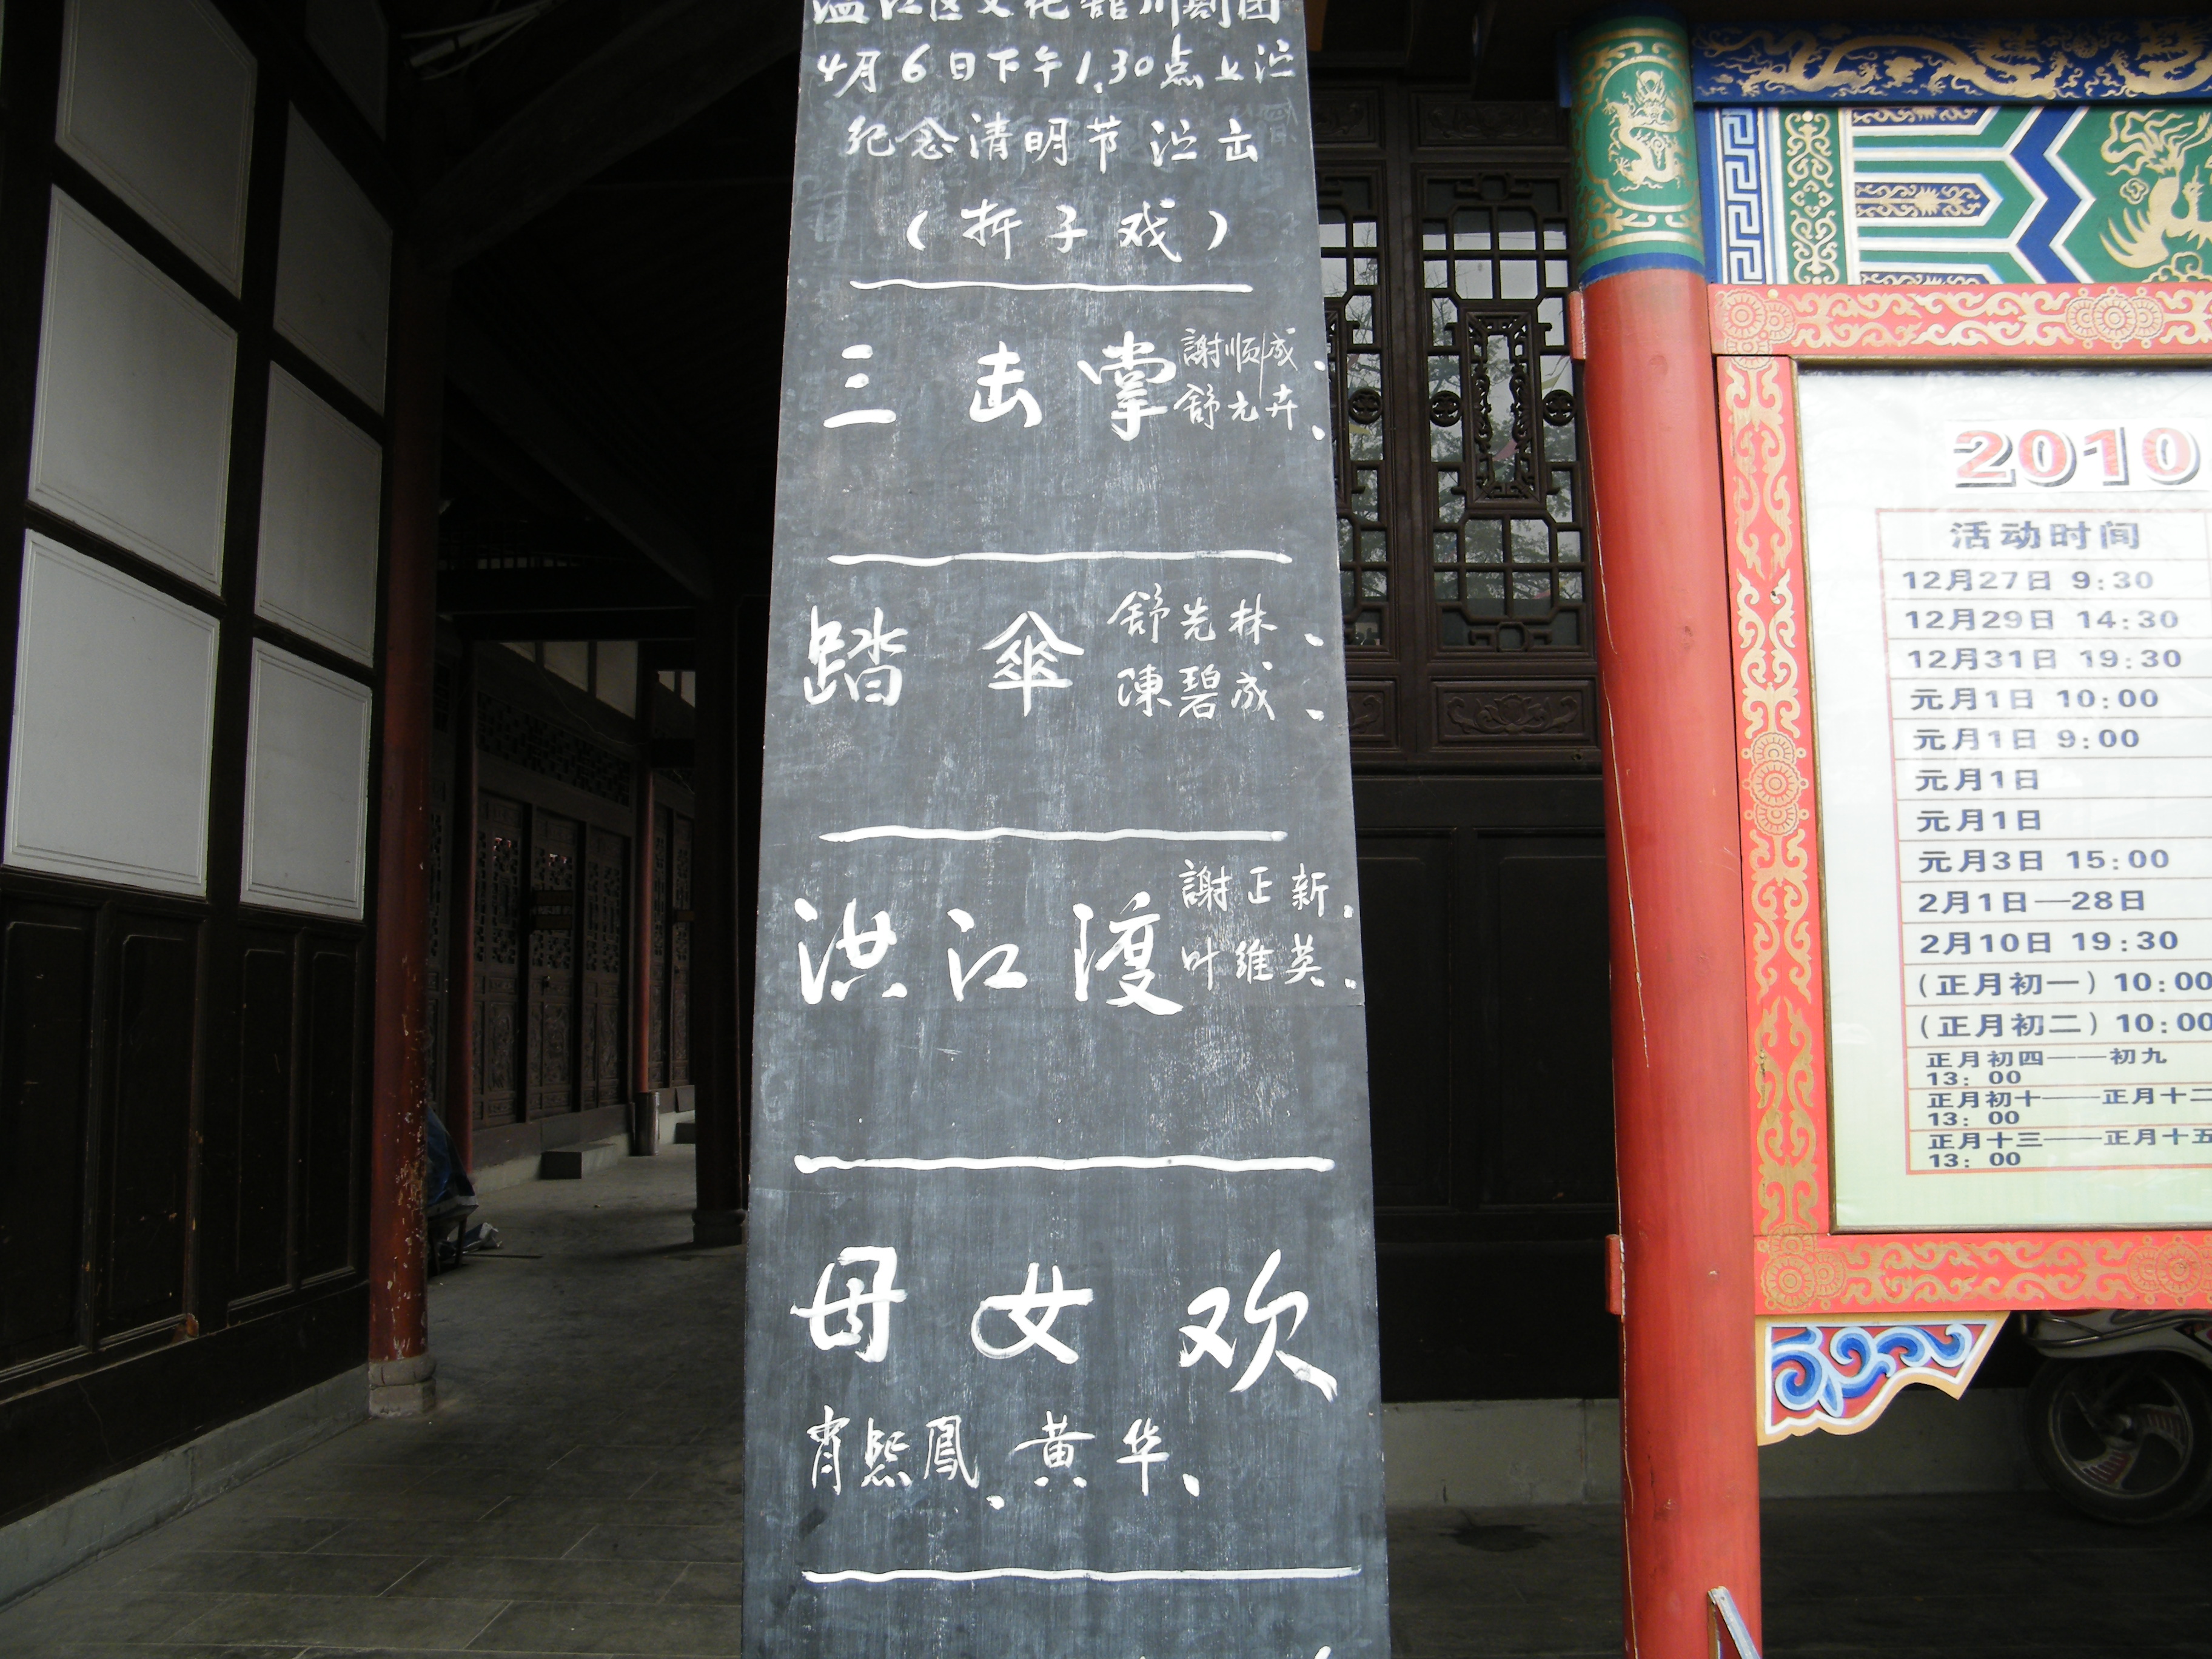 温江区文化馆川剧团
4月6日下午1.30点上泣
纪念清明节泣出
(折子戏)
三击掌
謝顺成
舒元卉.
踏傘
舒先林
陳碧成
洪江渡
謝正新.
叶維英.
母女欢
肖熙鳳、黄华、
2010
活动时间
12月27日 9:30
12月29日 14:30
12月31日 19:30
元月1日 10:00
元月1日 9:00
元月1日
元月1日
元月3日 15:00
2月1日—28日
2月10日 19:30
(正月初一) 10:00
(正月初二) 10:00
正月初四——初九
13: 00
正月初十——正月十二
13: 00
正月十三——正月十五
13: 00